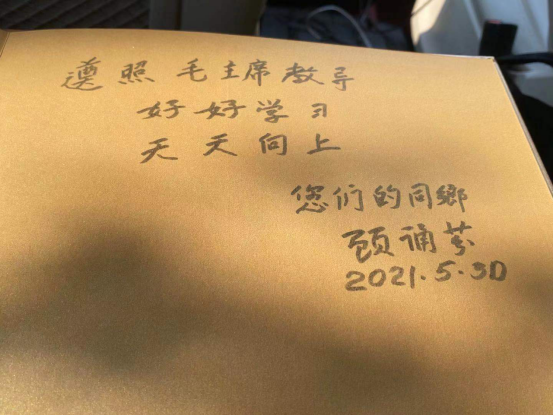 遵照 毛主席教导
好好学习
天天向上
您们的同鄉
顾诵芬
2021.5.30